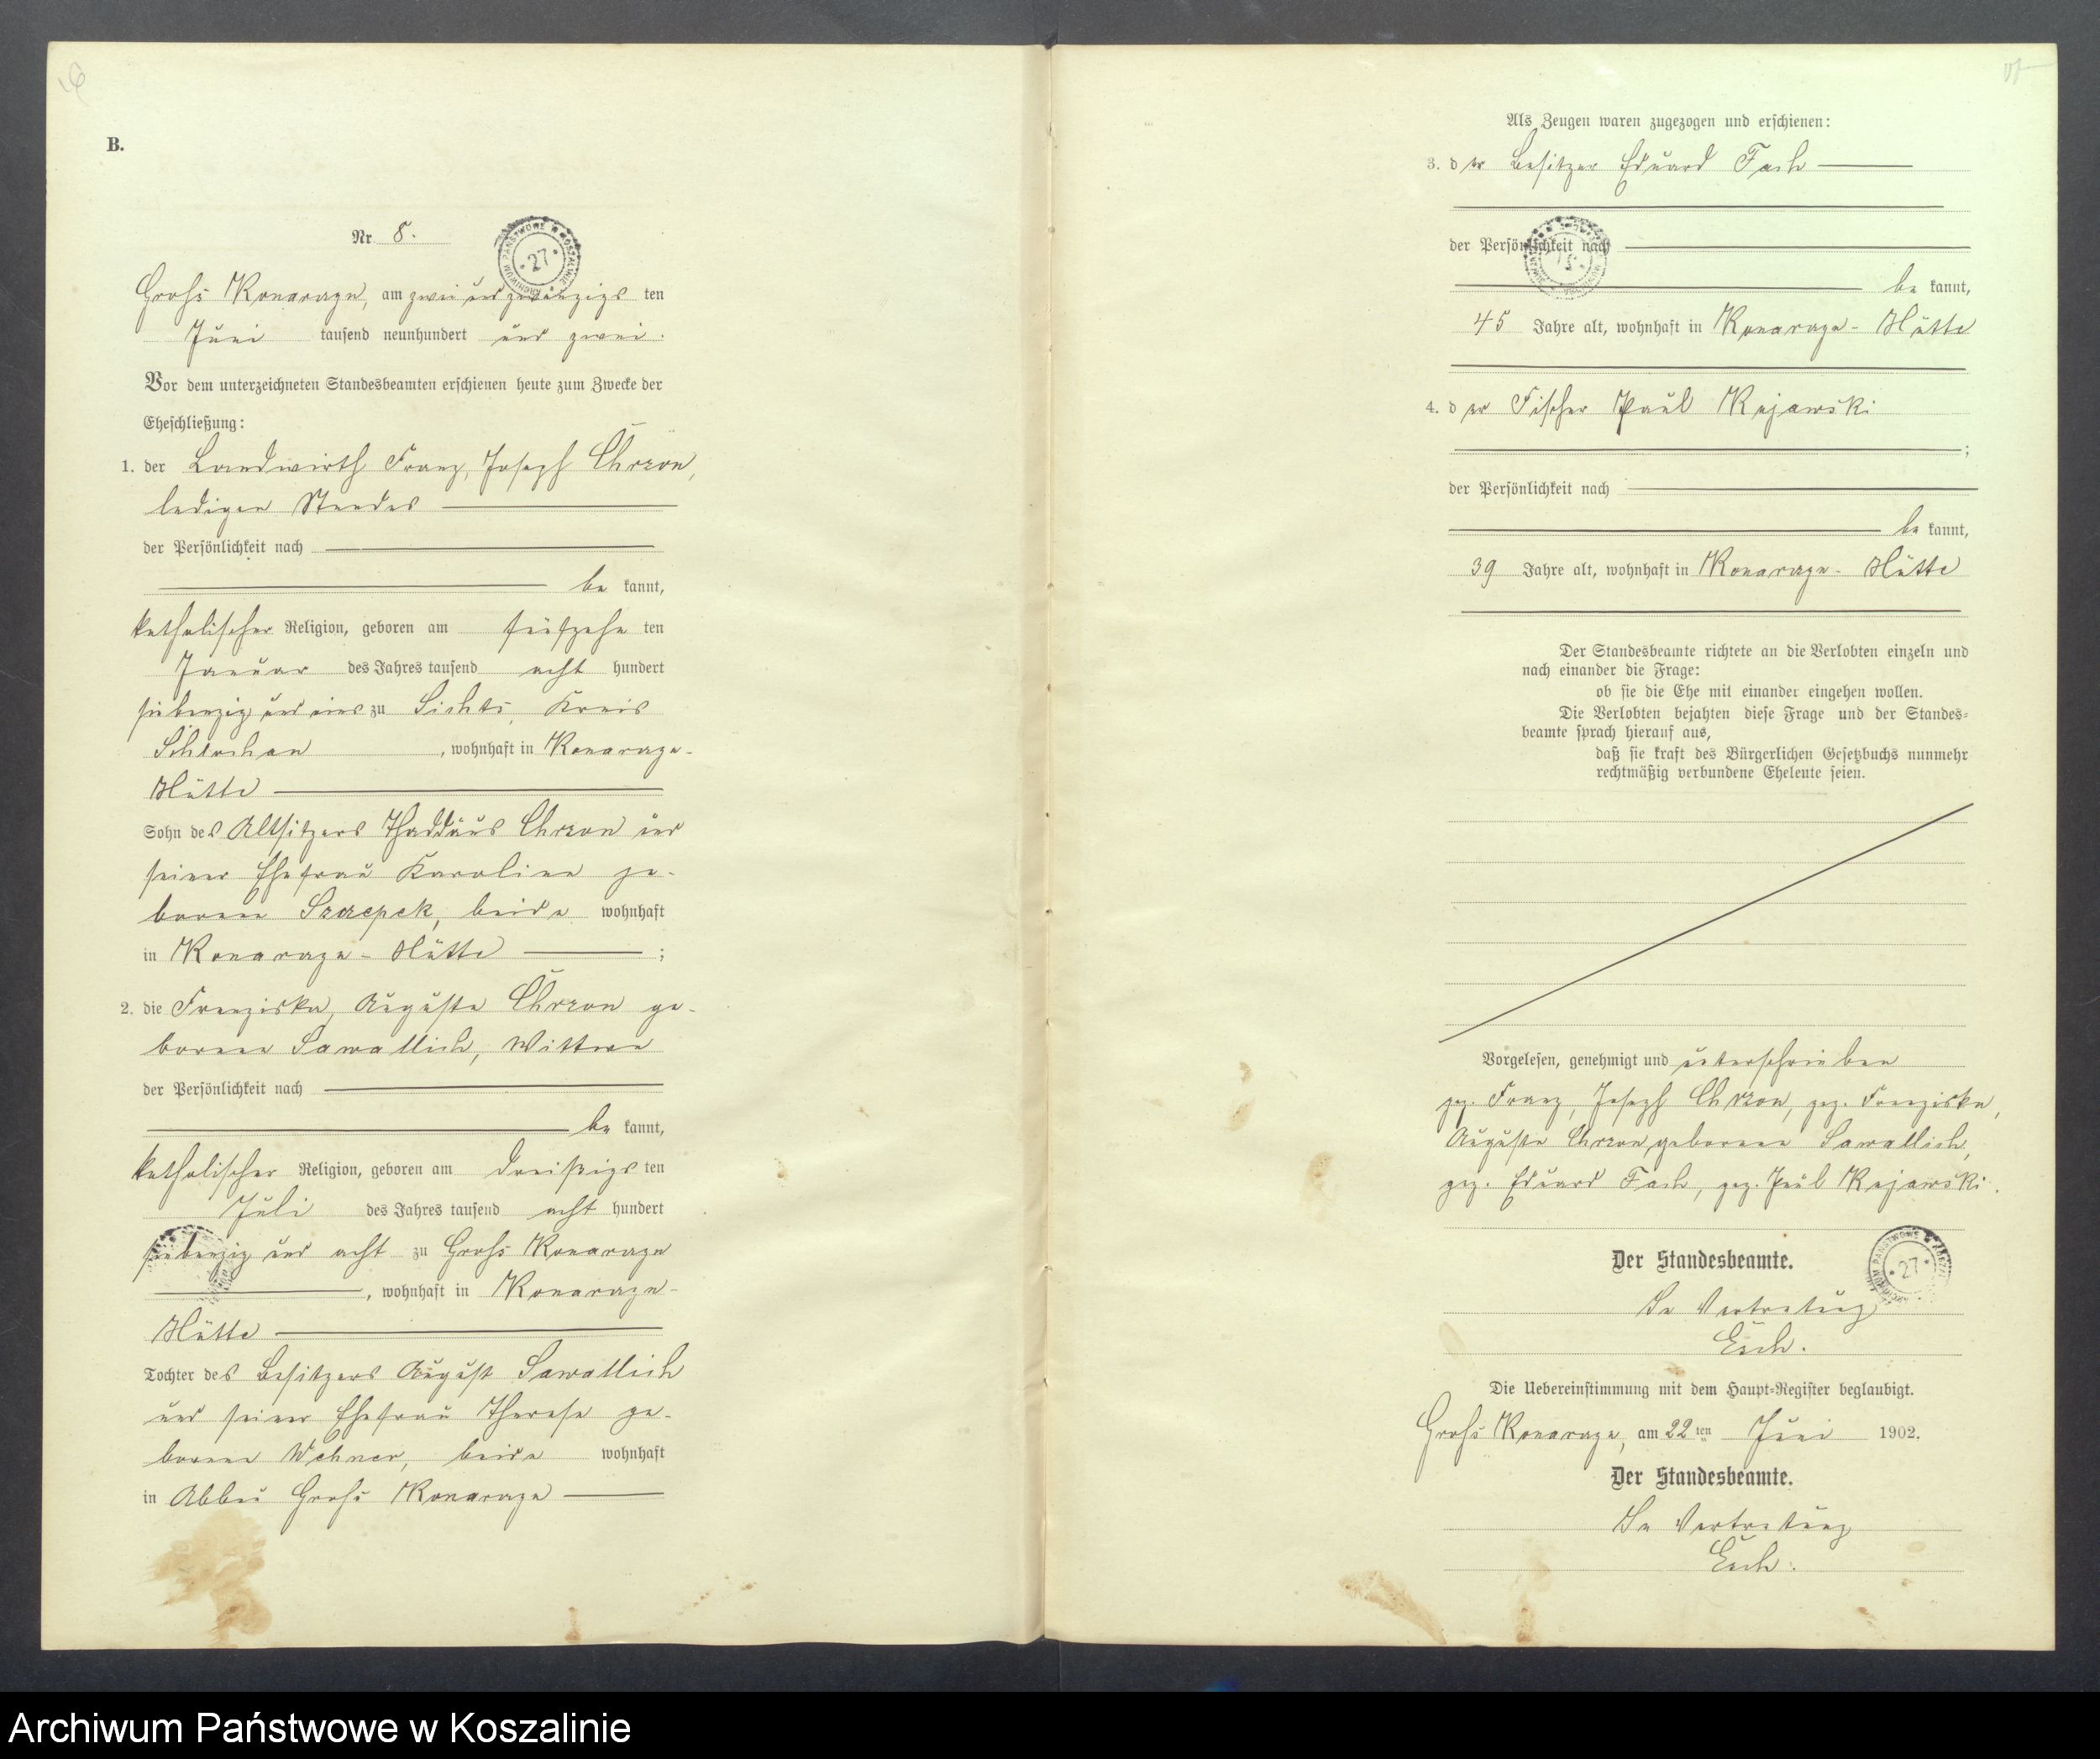 B.
Nr. 8.
ARCHIWUM PAŃSTWOWE W KOSZALINIE
27
Groß Konarczyn, am zwei und zwanzigs ten
Juni tausend neunhundert und zwei.
Vor dem unterzeichneten Standesbeamten erschienen heute zum Zwecke der
Eheschließung:
1. der Landwirth Franz, Joseph Chrzon,
ledigen Standes
der Persönlichkeit nach
be kannt,
katholischer Religion, geboren am fünfzehn ten
Januar des Jahres tausend acht hundert
siebenzig und eins zu Sichts, Kreis
Schlochau, wohnhaft in
Hütte
Sohn des Altsitzers Thaddäus Chrzon und
seiner Ehefrau Karoline ge-
borene beide wohnhaft
in Hütte ;
2. die Franziska, Auguste Chrzon ge-
borene Sawallich, Wittwe
der Persönlichkeit nach
be kannt,
katholischer Religion, geboren am dreißigs ten
Juli des Jahres tausend acht hundert
siebenzig und acht zu Groß
, wohnhaft in
Hütte
Tochter des Besitzers August Sawallich
und seiner Ehefrau Therese ge-
borene Wehner, beide wohnhaft
in Abbau Groß
Als Zeugen waren zugezogen und erschienen:
3. d er Besitzer Eduard Fach
der Persönlichkeit nach
be kannt,
45 Jahre alt, wohnhaft in Hütte
4. d er Fischer Paul Kujawski
;
der Persönlichkeit nach
be kannt,
39 Jahre alt, wohnhaft in Hütte
Der Standesbeamte richtete an die Verlobten einzeln und
nach einander die Frage:
ob sie die Ehe mit einander eingehen wollen.
Die Verlobten bejahten diese Frage und der Standes-
beamte sprach hierauf aus,
daß sie kraft des Bürgerlichen Gesetzbuchs nunmehr
rechtmäßig verbundene Eheleute seien.
Vorgelesen, genehmigt und unterschrieben
gez. Franz, Joseph Chrzon, gez. Franziska,
Auguste Chrzon, geborene Sawallich,
gez. Eduard Fach, gez. Paul Kujawski.
Der Standesbeamte.
ARCHIWUM PAŃSTWOWE W KOSZALINIE
27
In Vertretung
Die Uebereinstimmung mit dem Haupt-Register beglaubigt.
Groß am 22 ten Juni 1902.
Der Standesbeamte.
In Vertretung
Archiwum Państwowe w Koszalinie